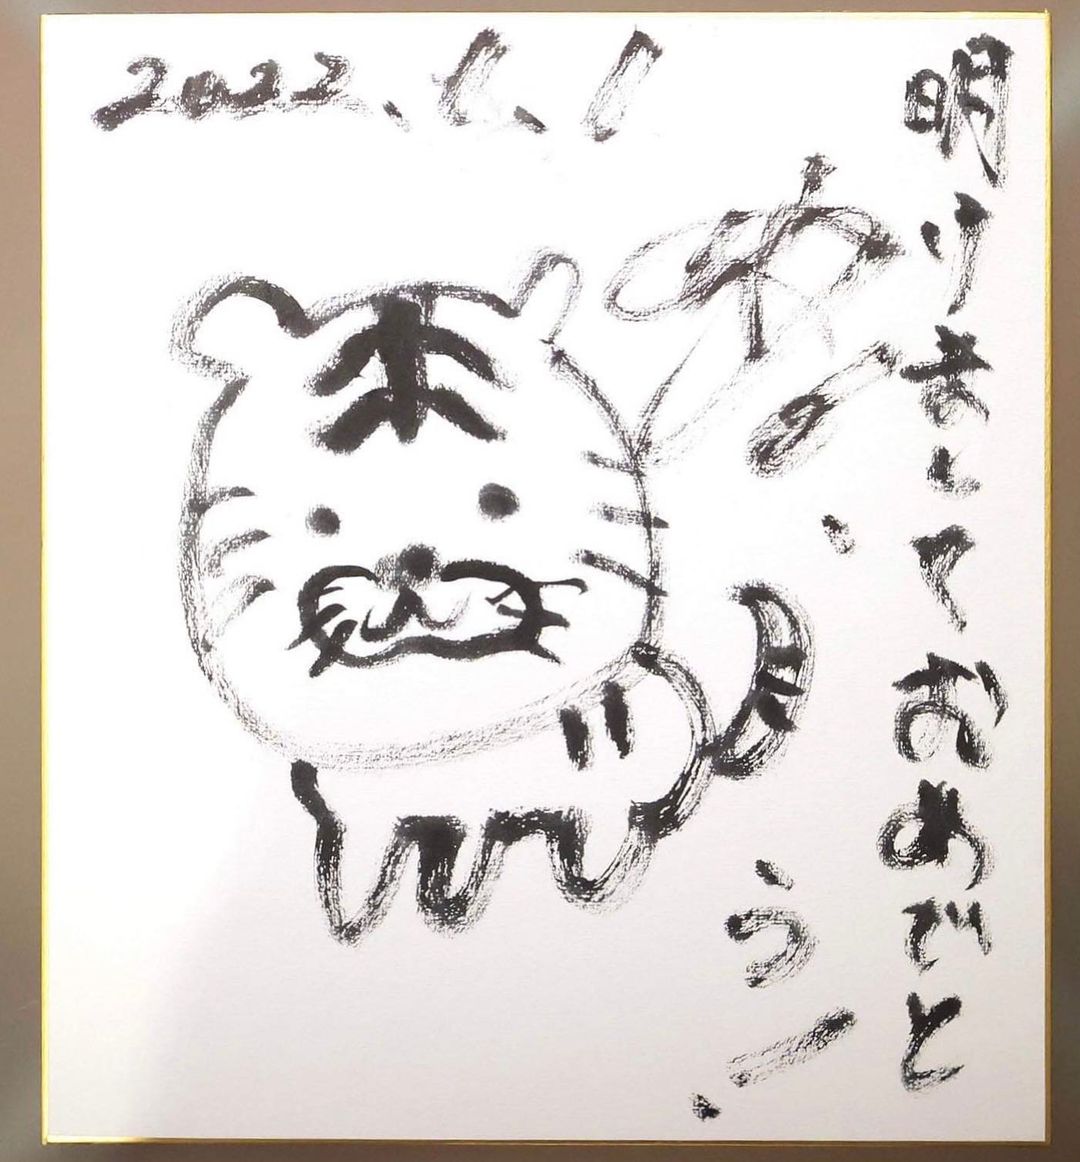 2022、1、1
明けましておめでと
う!